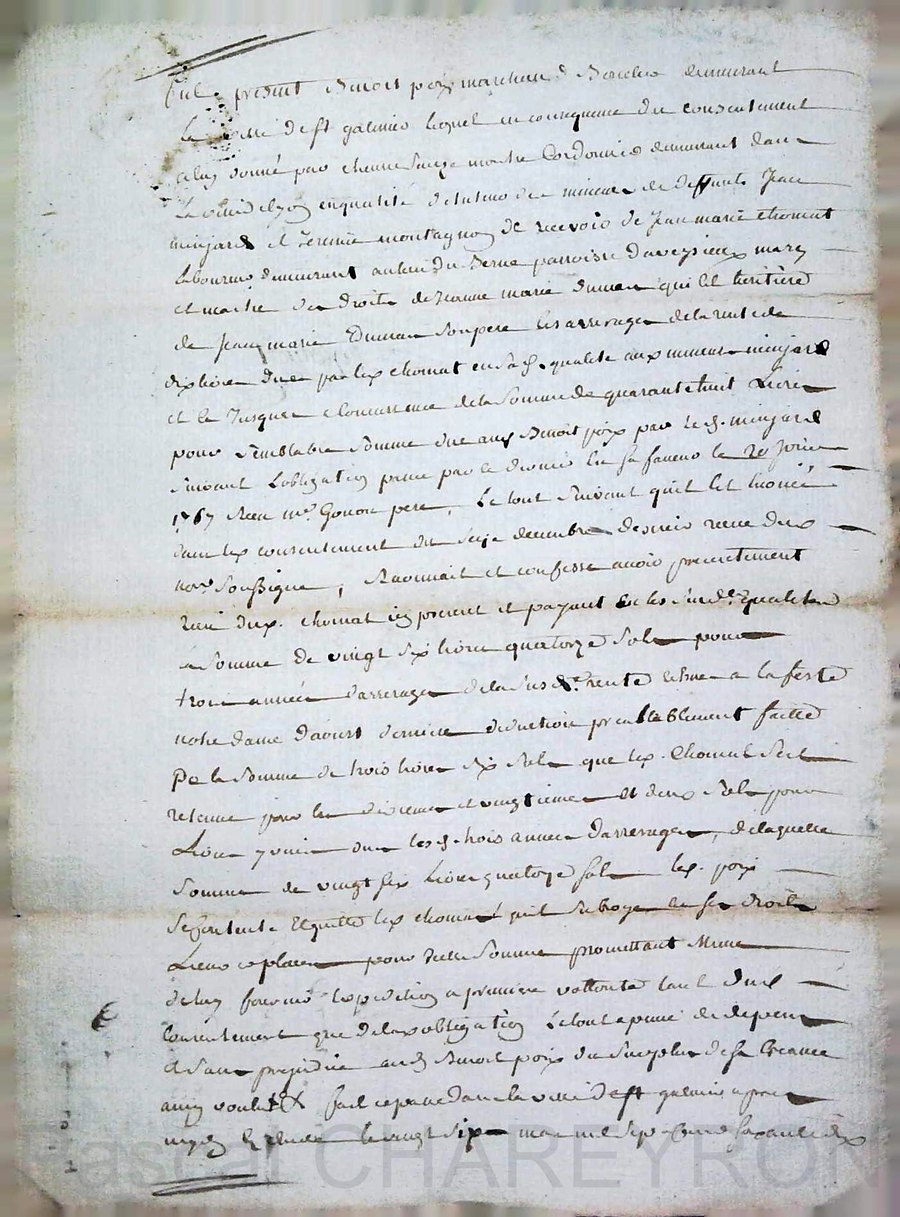 fut present Benoit poix marchand Bourelier demeurant
la ville de st galmier lequel en consequence du consentement
a luy donné par maitre Cordonnier demeurant dans
la ville de lyon en qualité de tuteur des mineurs de deffunts Jean
minjard et montagnon de recevoir de Jean marie chomat
laboureur demeurant au lieu du Berne parroisse daveysieux mary
et maitre des droits de Jeanne marie Dumas qui est heritiere
de Jean marie Dumas son pere les arrerages de la rente de
dix livres due par led chomat en sad. qualité aux mineurs minjard
et ce jusques a concurrence de la somme de quarante huit Livres
pour semblable somme due aud Benoit poix par led. minjard
suivant Lobligation par ce dernier en sa faveur le 20
1767 Receu me. Gonon pere, Le tout suivant qu'il est enoncé
dans led consentement du seize decembre dernier receu du
nore. soussigné, Reconnait et confesse avoir presentement
receu dud. chomat icy present et payant es susd. qualités
la somme de vingt six livres quatorze sols pour
trois années d'arrerages de la susd. rente echues a la feste
notre dame d'aoust derniere deduction prealablement faitte
De la somme de trois livres six sols que led. Chomat s'est
retenue pour les dixiemes et vingtiemes et deux sols pour
Livre d'iceux des trois années darrerages, de laquelle
somme de vingt six Livres quatorze sols led. poix
se contente et quitte led chomat qu'il subroge en ses droits
Lieux et places pour ditte somme promettant
de luy fournir expedition a premiere vollonté tant dud
consentement que de lad obligation Le tout a peine de depens
et sans prejudice aud Benoit poix du surplus de sa Creance
ainsy voulu fait et passé dans la ville de st galmier apres
midy Etude le vingt six mars mil sept cents soixante dix
Pascal CHAREYRON